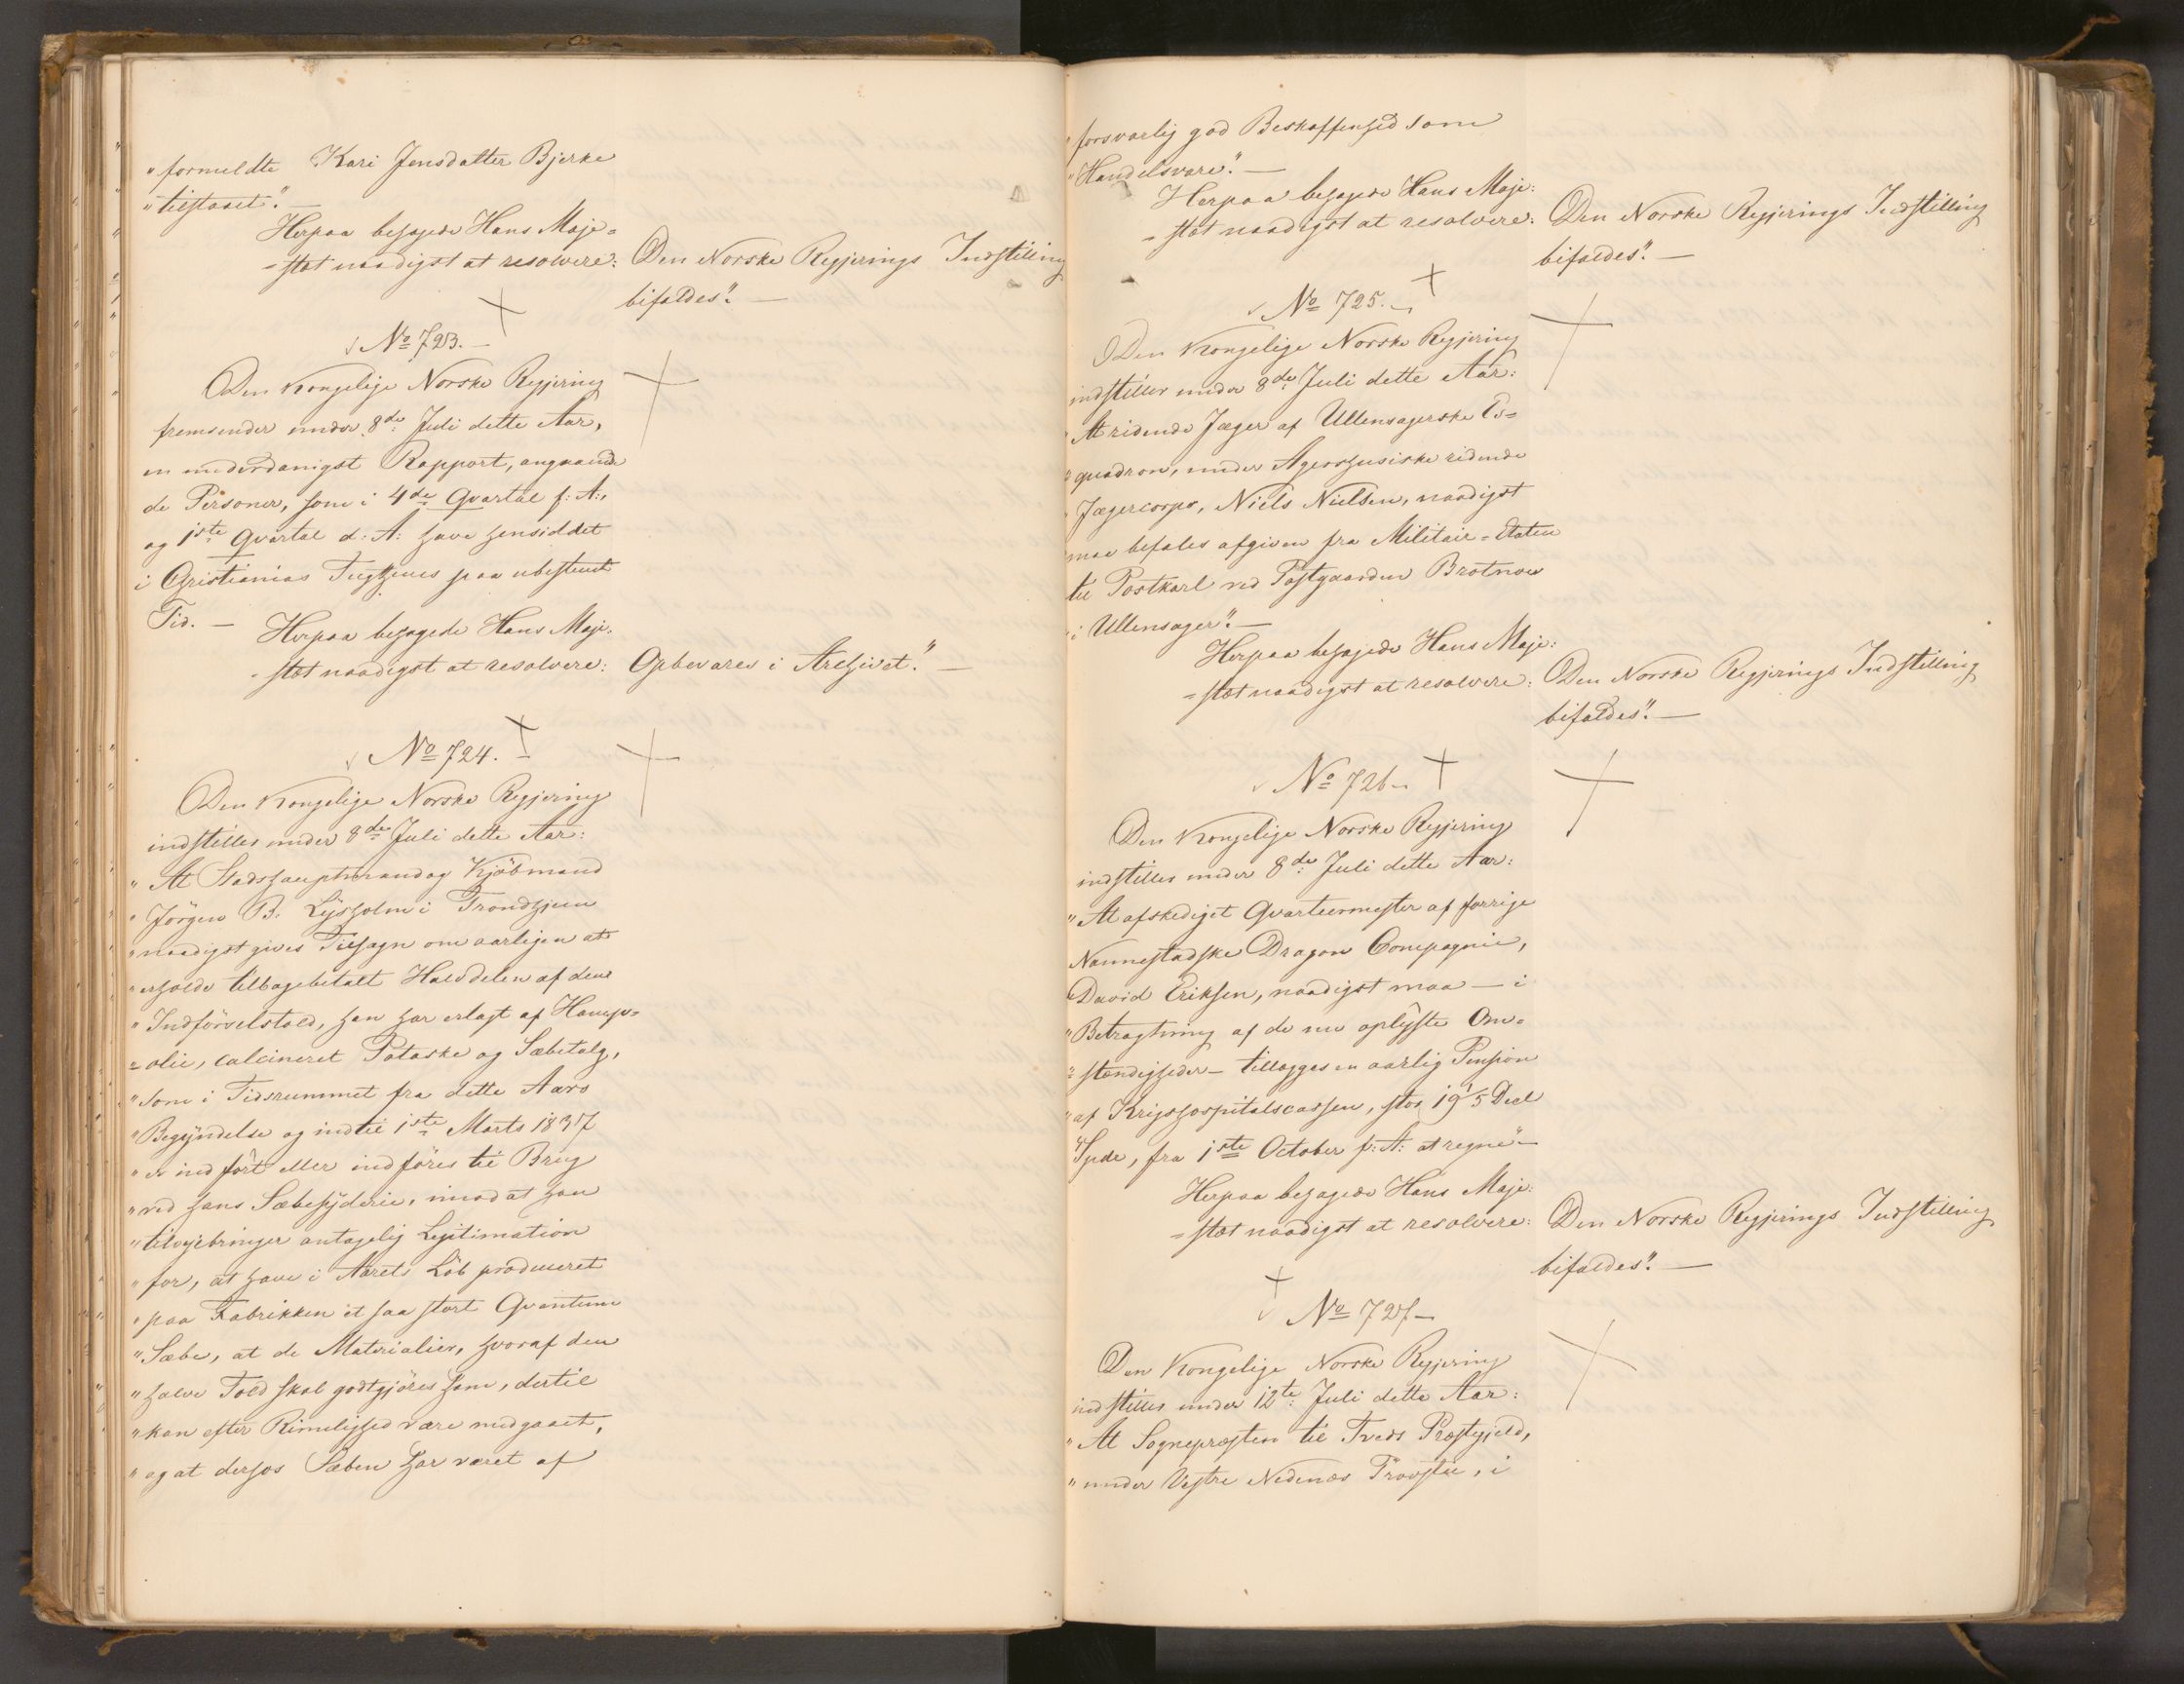 "formeldte Kari Jensdatter Bjerke
"tilstaaet". —
Herpaa behagede Hans Maje=
=stæt naadigst at resolvere: Den Norske Regjerings Indstilling
bifaldes". —
No 723. —
Den Kongelige Norske Regjering
fremsender under 8de Juli dette Aar,
en underdanigst Rapport, angaaende
de Personer, som i 4de Qvartal f: A:,
og 1ste Qvartal d. A: have hensiddet
i Christianias Tugthuus paa ubestemt
Tid. — Herpaa behagede Hans Maje=
=stæt naadigst at resolvere: Opbevares i Archivet." —
No 724. —
Den Kongelige Norske Regjering
indstiller under 8de Juli dette Aar:
"At Stadshauptmand og Kjöbmand
"Jörgen B. Lysholm i Trondhjem
"naadigst gives Tilsagn om aarligen at
"erholde tilbagebetalt Halvdelen af den
"Indförselstold, han har erlagt af Hamp=
=olie, calcineret Potaske og Sæbetalg,
"som i Tidsrummet fra dette Aars
"Begyndelse og indtil 1ste Marts 1837
"er indfört eller indföres til Brug
"ved hans Sæbesyderie, imod at han
"tilveiebringer antagelig Legitimation
"for, at have i Aarets Löb produceret
"paa Fabrikken et saa stort Qvantum
"Sæbe, at de Materialier, hvoraf den
"halve Told skal godtgjöres ham, dertil
"kan efter Rimelighed være medgaaet,
"og at derhos Sæben har været af
"forsvarlig god Beskaffenhed som
"Handelsvare". —
Herpaa behagede Hans Maje:
=stæt naadigst at resolvere: Den Norske Regjerings Indstilling
bifaldes". —
No 725. —
Den Kongelige Norske Regjering
indstiller under 8de Juli dette Aar:
"At ridende Jæger af Ullensagerske Es=
"quadron, under Agershusiske ridende
"Jægercorps, Niels Nielsen, naadigst
"maa befales afgiven fra Militair=Etaten
til Postkarl ved Postgaarden Brotnow
"i Ullensager". —
Herpaa behagede Hans Maje:
=stæt naadigst at resolvere: Den Norske Regjerings Indstilling
bifaldes". —
No 726 —
Den Kongelige Norske Regjering
indstiller under 8de Juli dette Aar:
"At afskediget Qvarteermester af forrige
Nannestadske Dragon Compagnie,
David Eriksen, naadigst maa — i
"Betragtning af de nu oplyste Om=
"stændigheder — tillægges en aarlig Pension
"af Krigshospitalscassen, stor 19 1/5 Deel
"Spdr, fra 1ste October f: A: at regne" —
Herpaa behagede Hans Maje:
=stæt naadigst at resolvere: Den Norske Regjerings Indstilling
bifaldes". —
No 727 —
Den Kongelige Norske Regjering
indstiller under 12te Juli dette Aar:
"At Sognepræsten til Tveds Præstegjeld,
"under Vestre Nedenæs Provstie, i